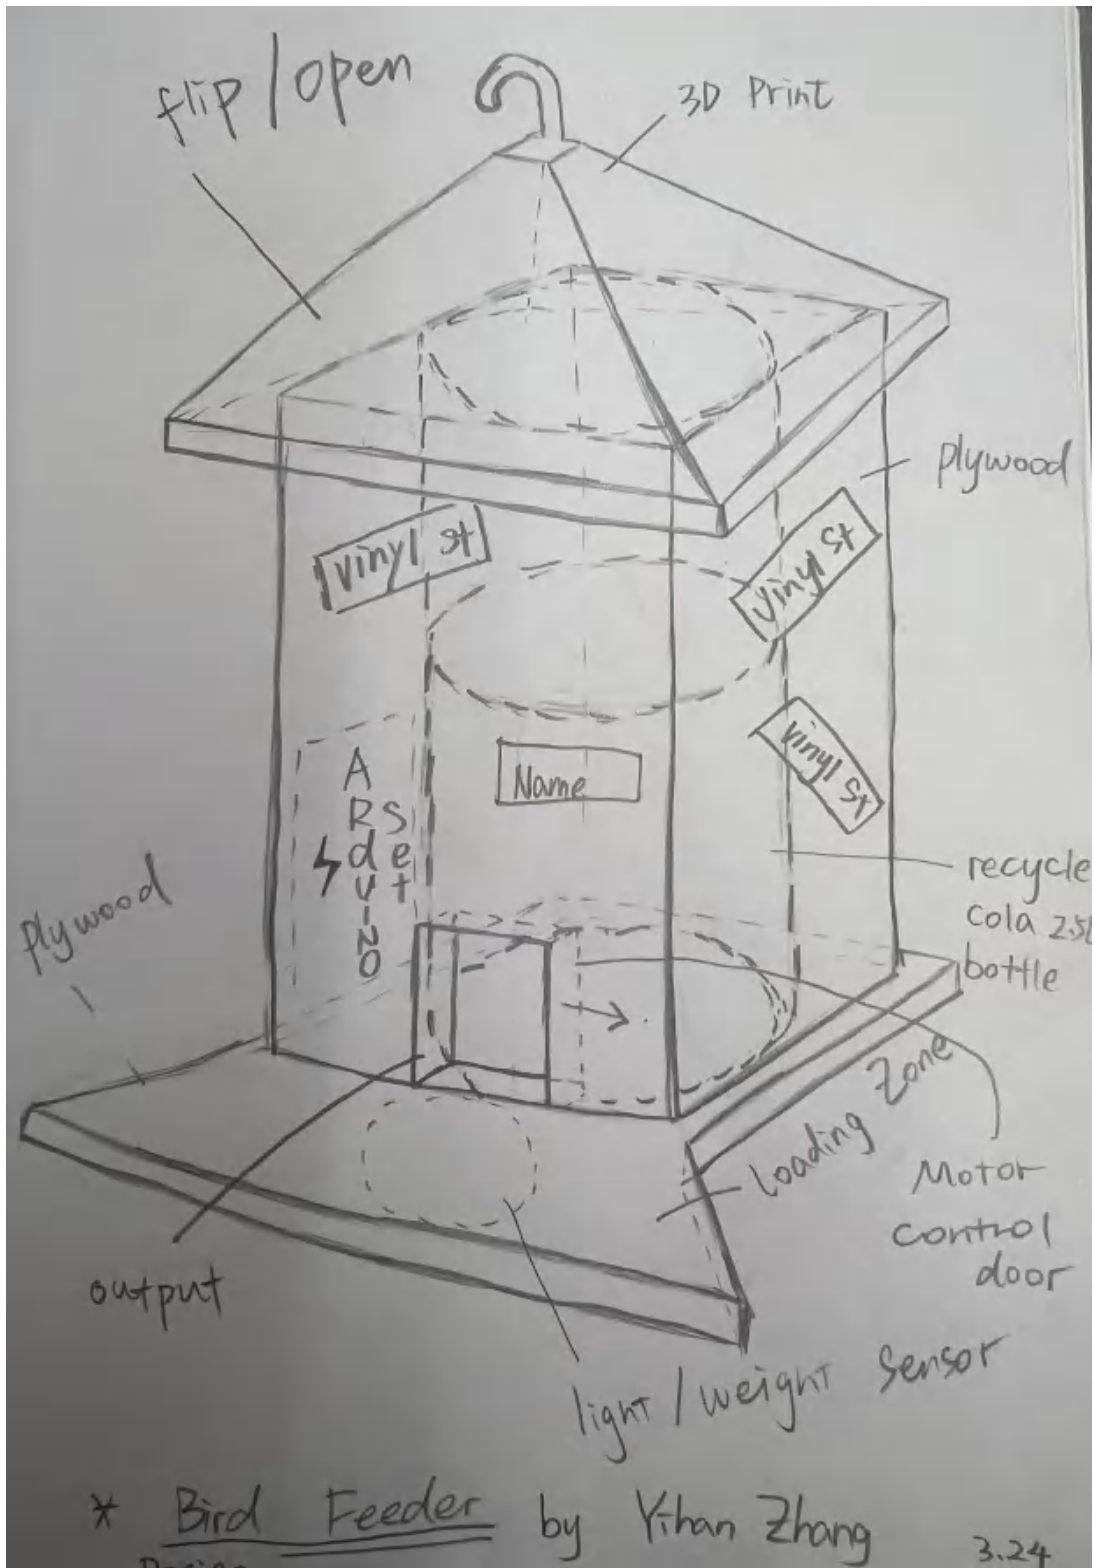 flip / open
3D Print
plywood
Vinyl St
Vinyl St
Vinyl St
Name
ARduino
Set
plywood
recycle
cola 2.5L
bottle
Loading Zone
Motor
control
door
output
light / weight sensor
* Bird Feeder by Yihan Zhang
3.24